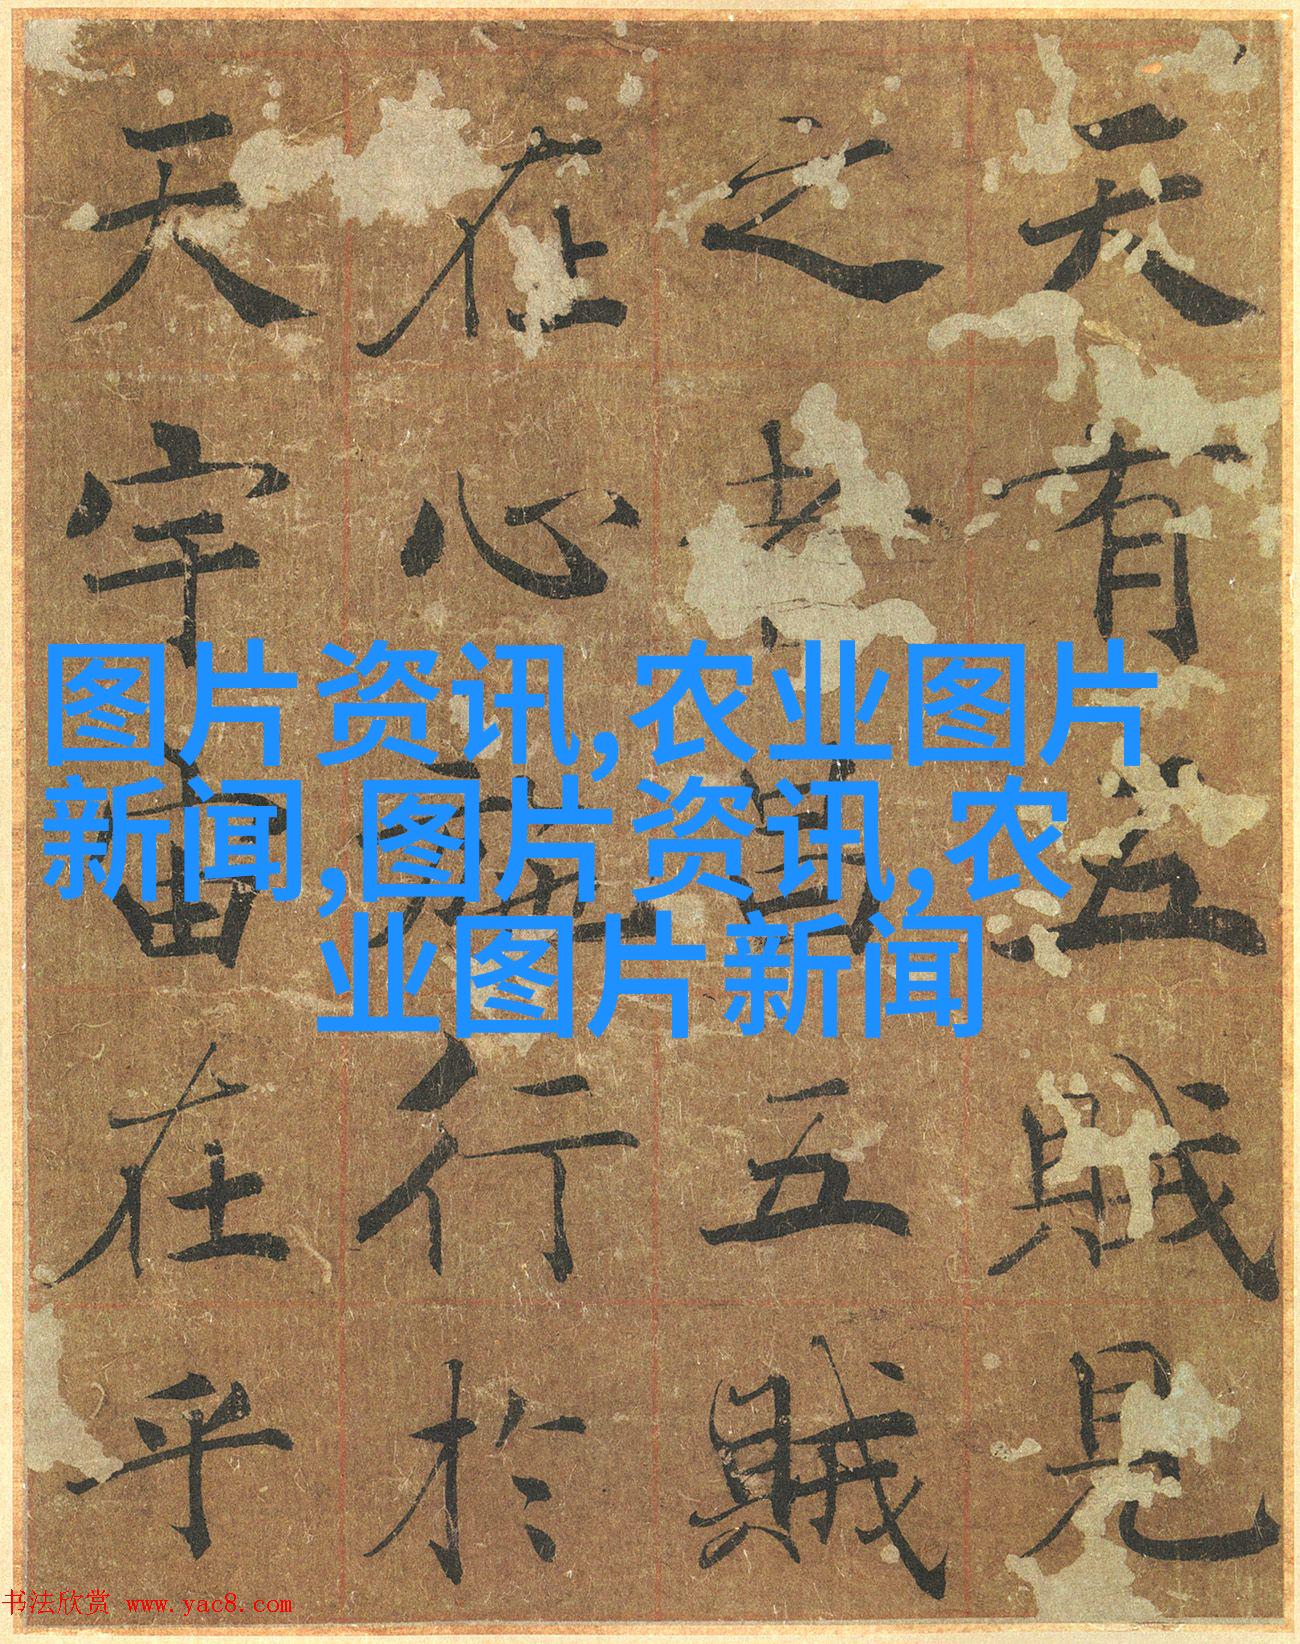 天有五賊見
之者昌五賊
在心施行於
天宇宙在乎
图片资讯,农业图片
新闻,图片资讯,农
业图片新闻
书法欣赏 www.yac8.com